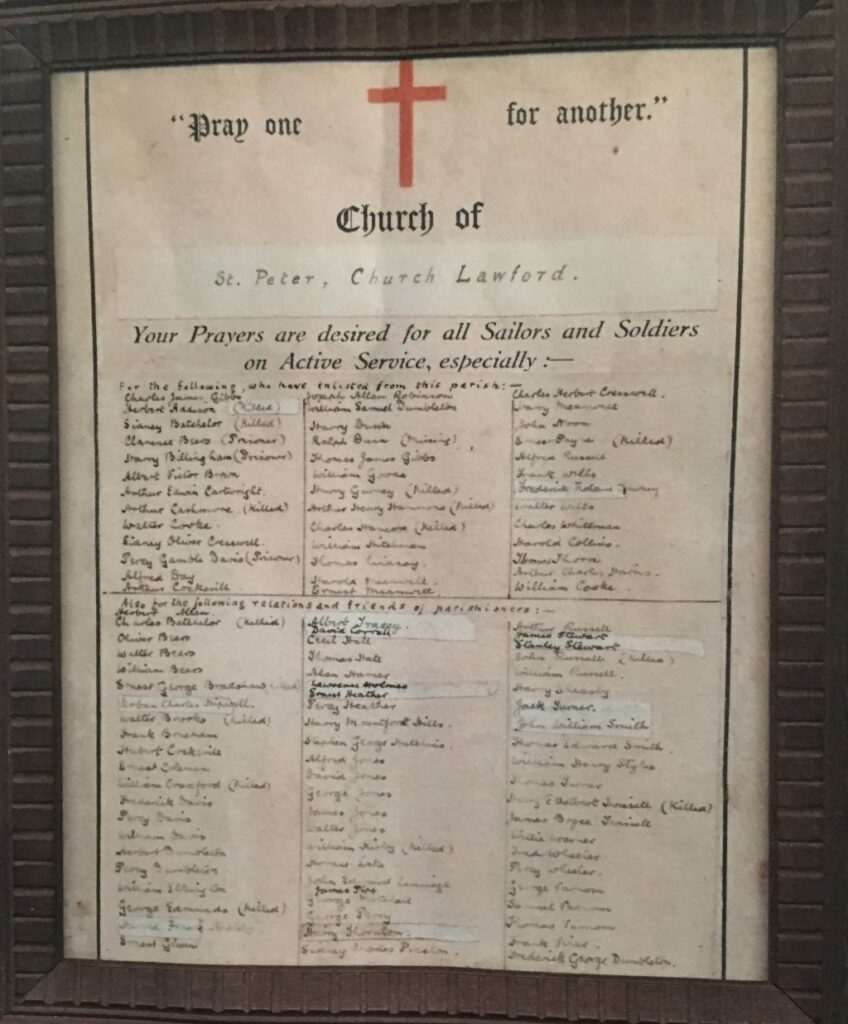 "Pray one for another."
Church of
St. Peter, Church Lawford.
Your Prayers are desired for all Sailors and Soldiers
on Active Service, especially :—
For the following, who have enlisted from this parish:—
Charles James Gibbs
Herbert Addison (Killed)
Sidney Batchelor (Killed)
Clarence Beers (Prisoner)
Harry Billingham (Prisoner)
Albert Victor Brain
Arthur Edwin Cartwright.
Arthur Cashmore (Killed)
Walter Cooke
Sidney Oliver Cresswell.
Percy Gamble Davis (Prisoner)
Alfred Day
Arthur Cocksvill
Joseph Allan Robinson
William Samuel Dumbleton
Harry Dunn
Ralph Dunn (Missing)
Thomas James Gibbs
William
Harry Gurney (Killed)
Arthur Henry (Killed)
Charles (Killed)
William Hitchman
Thomas
Harold Meanwell
Ernest Meanwell.
Charles Herbert Cresswell.
Harry Meanwell
John Noon
Ernest Payne (Killed)
Alfred Russell
Frank Wills
Frederick
Walter Wills
Charles Whiteman
Harold Collins.
Thomas Thorn
Arthur Charles
William Cooke.
Also for the following relations and friends of parishioners:—
Herbert Allen
Charles Batchelor (Killed)
Oliver Beers
Walter Beers
William Beers
Ernest George Bradshaw
Charles
Walter Brooks (Killed)
Frank
Hubert Cocksvill
Ernest Coleman
William Crawford (Killed)
Frederick Davis
Percy Davis
William Davis
Herbert Dumbleton
Percy Dumbleton
William Elkington
George Edmunds (Killed)
David
Ernest
Albert Tracey.
David Corrall
Cecil Hall
Thomas Hall
Alan Hamer
Lawrence Holmes
Ernest Heather
Percy Heather
Harry Mountford Hills.
Stephen George Hutchins.
Alfred Jones
David Jones
George Jones
James Jones
Walter Jones
William Kirby (Killed)
Horace Lake
John Edward
James
George
George Perry
Harry Thornton.
Sidney Charles Preston.
Arthur Russell
James Stewart
Stanley Stewart
John Russell (Killed)
William Russell.
Harry Sheasby
Jack Turner.
John William Smith
Thomas Edward Smith.
William Harry Styles
Thomas Turner
Harry Ethelbert (Killed)
James
Willie Warner
Fred Wheeler
Percy Wheeler.
George
Samuel
Thomas
Frank
Frederick George Dumbleton.